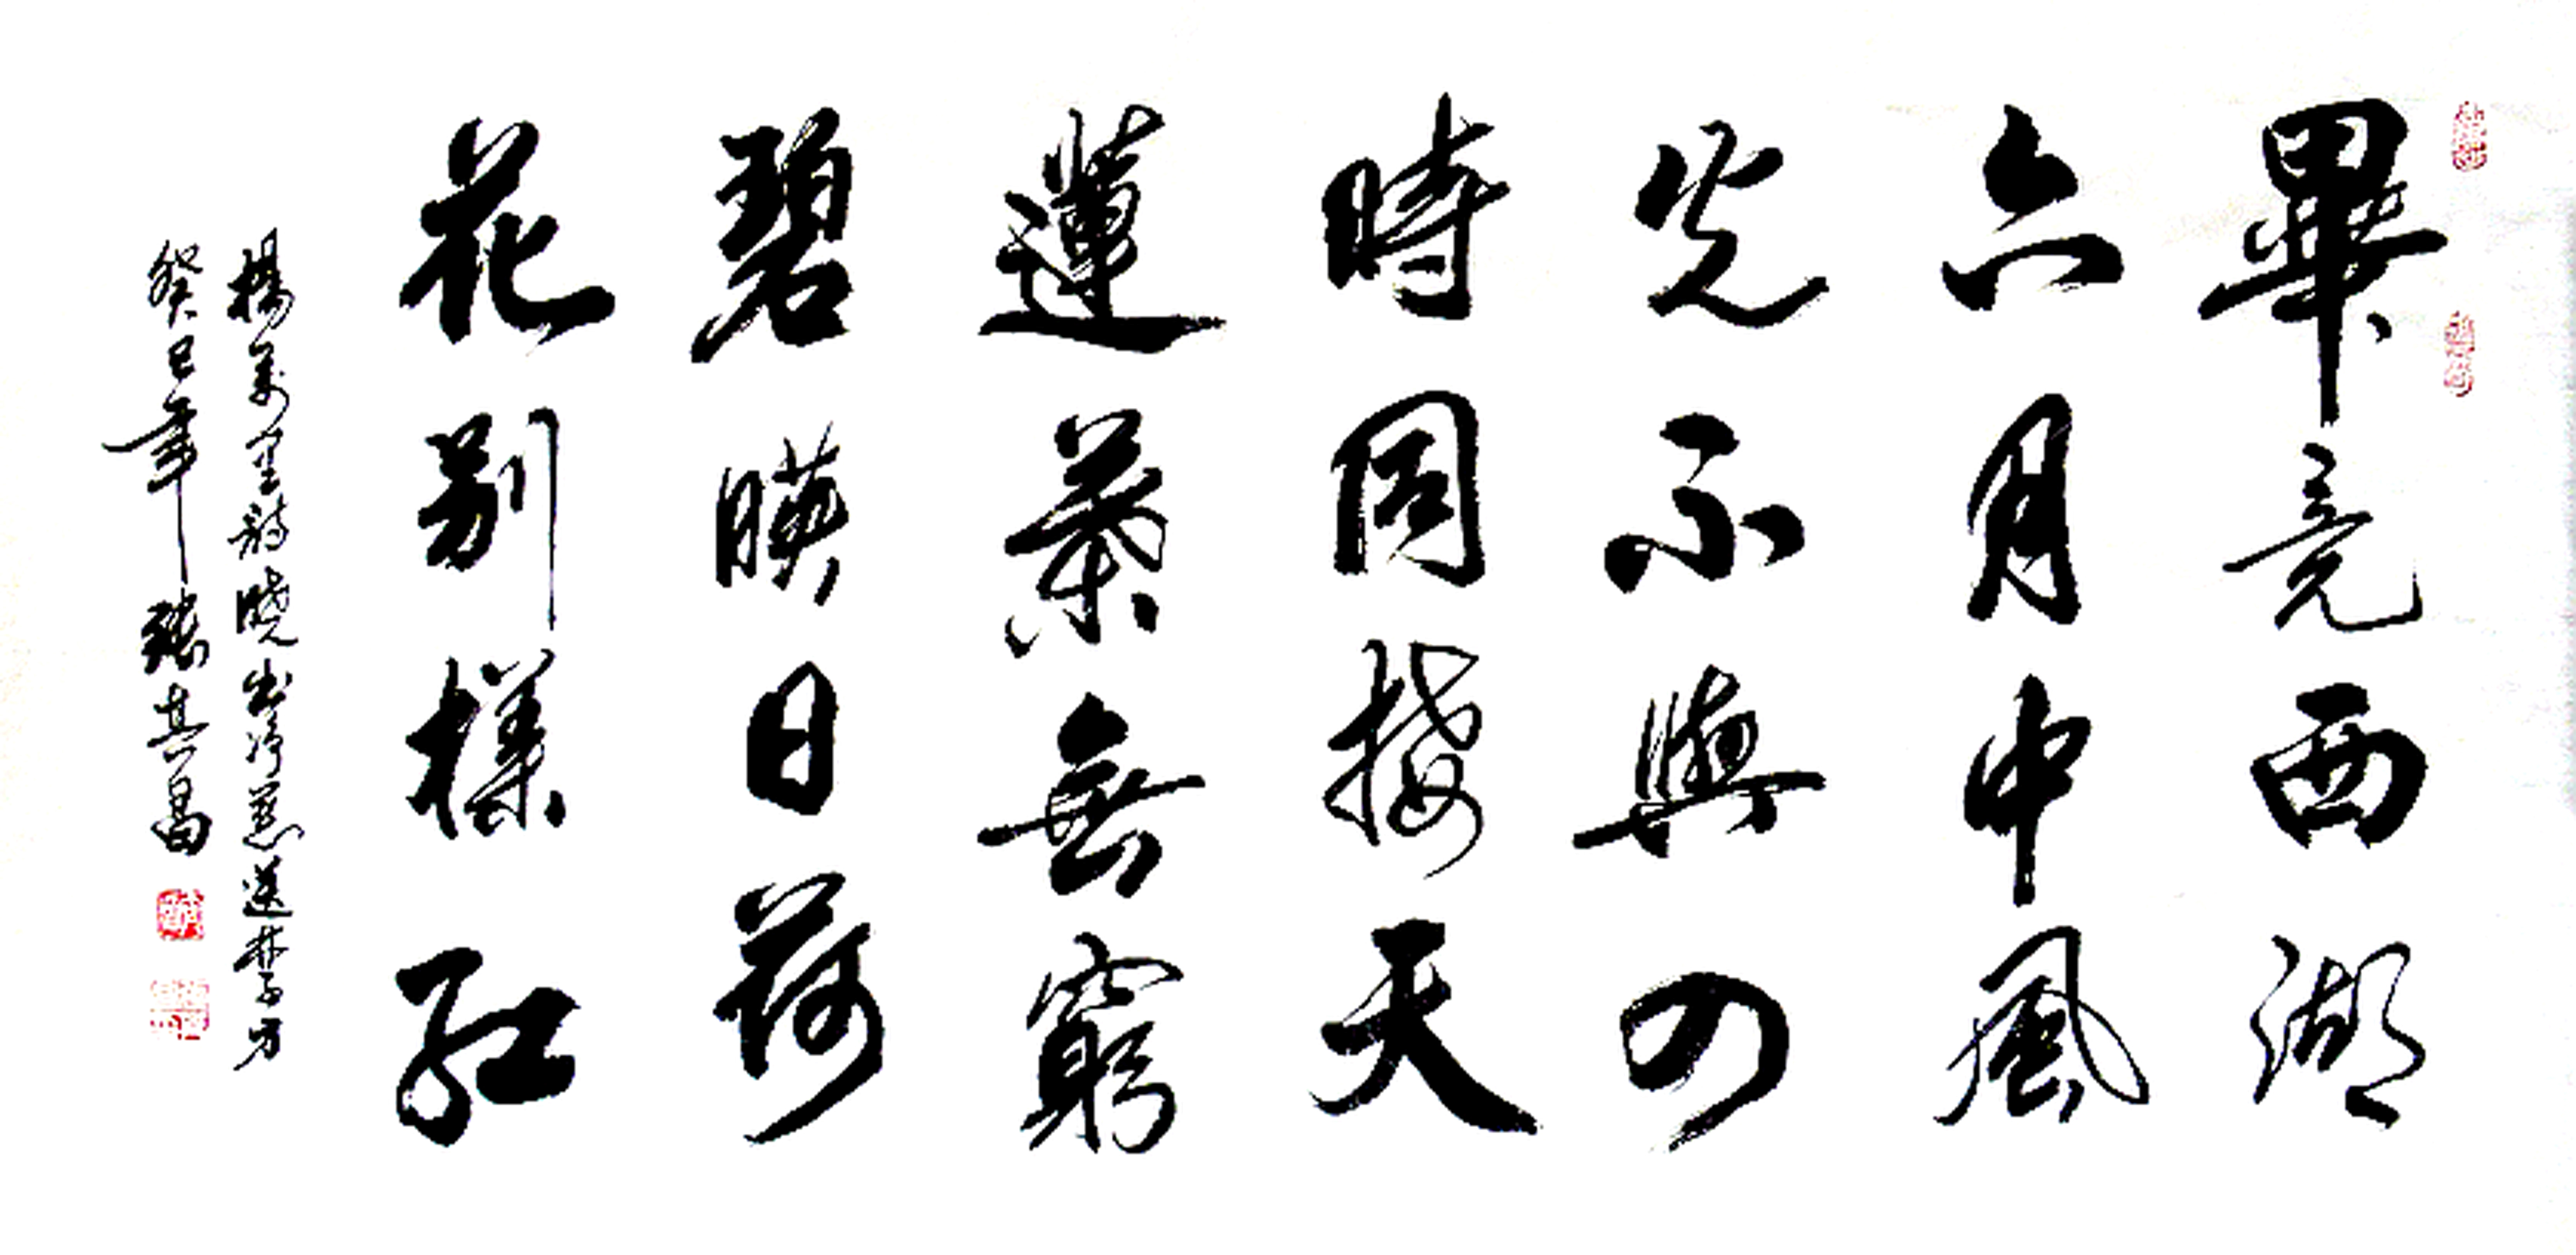 畢竟西湖
六月中風
光不與四
時同接天
蓮葉無窮
碧暎日荷
花別樣紅
楊萬里詩曉出淨慈送林子方
癸巳年張其昌